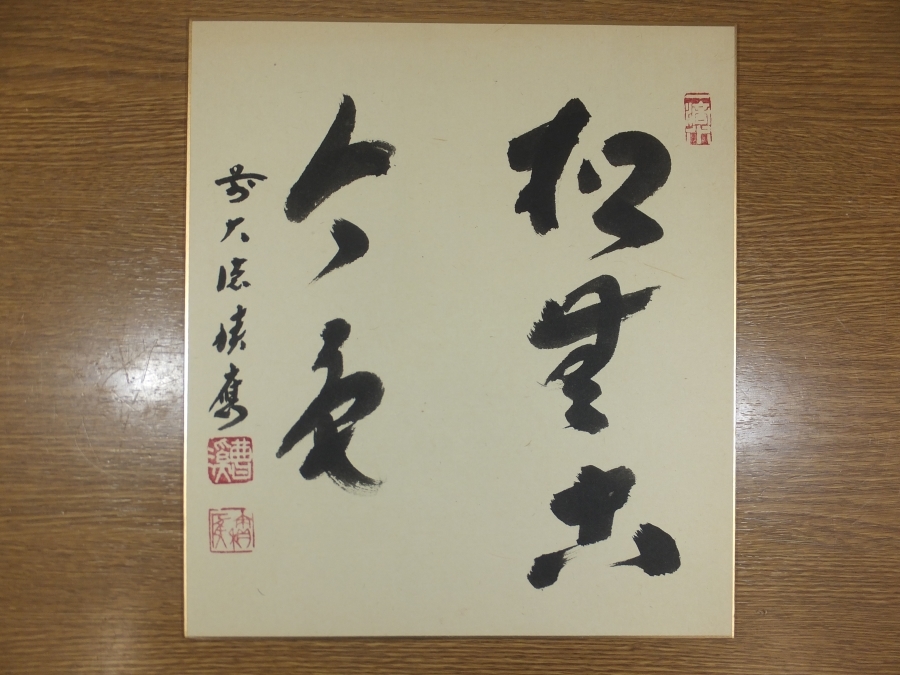 松無古
今色
前大徳積應
曹溪